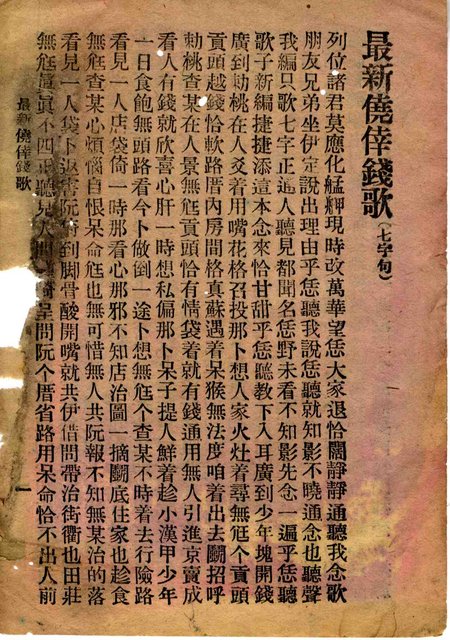 最新僥倖錢歌（七字句）
列位諸君莫應化艋舺現時改萬華望恁大家退恰闊靜靜通聽我念歌
朋友兄弟坐伊定說出理由乎恁聽我說恁聽就知影不曉通念也聽聲
我編只歌七字正遙人聽見都聞名恁野未看不知影先念一遍乎恁聽
歌子新編捷捷添這本念來恰甘甜乎恁聽教下入耳廣到少年塊開錢
廣到勍桃在人爻着用嘴花格召投那卜想人家火灶着尋無尫个貢頭
貢頭越錢恰軟路厝內房間格真蘇遇着呆猴無法度咱着出去鬭招呼
勍桃查某在人景無尫貢頭恰有情袋着就有錢通用無人引進京賣成
看人有錢就欣喜心肝一時想私偏那卜呆子提人鮮着趁小漢甲少年
一日食飽無頭路看今卜做倒一途卜想無尫个查某不時着去行險路
看見一人店袋倚一時那看心那邪不知店治圖一摘鬭底住家也趁食
無尫查某心煩惱自恨呆命尫也無可惜無人共阮報不知無某治的落
看見一人袋下返害阮 到脚骨酸開嘴就共伊借問帶治街衢也田莊
無尫 真不四正聽見人問 呈問阮个厝省路用呆命恰不出人前
最新僥倖錢歌
一